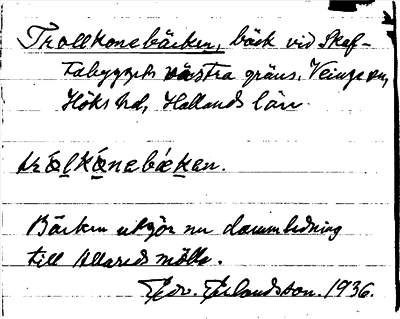 Trollkonebäcken, bäck vid Skof-
tabyggets västra gräns, Veinge sn,
Höks hd, Hallands län.
Bäcken utgör nu dammledning
till Allareds mölla.
Edv. Erlandsson. 1936.